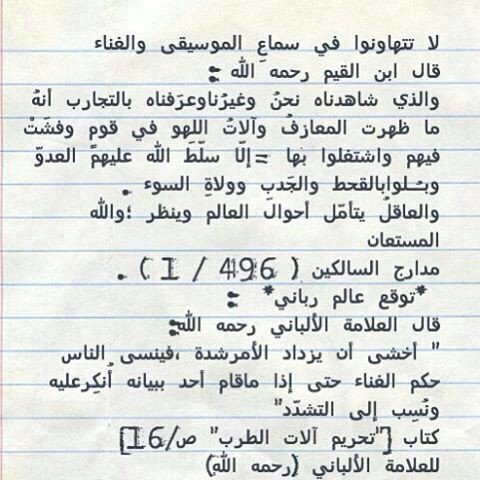 لا تتهاونوا في سماعِ الموسيقى والغناء
قال ابن القيم رحمه الله :
والذي شاهدناه نحنُ وغيرُناوعرَفناه بالتجارب أنهُ
ما ظهرت المعازفُ وآلاتُ اللهو في قوم وفشَتْ
فيهم واشتغلوا بها = إلّا سلّطَ الله عليهمً العدوّ
وبــلوابالقحط والجَدبِ وولاةِ السوء .
والعاقلُ يتأمّل أحوالَ العالم وينظر ؛والله
المستعان
مدارج السالكين ( 496 / 1 ) .
*توقع عالم رباني* :
قال العلامة الألباني رحمه الله:
" أخشى أن يزداد الأمرشدة ،فينسى الناس
حكم الغناء حتى إذا ماقام أحد ببيانه أُنكِرعليه
ونُسِب إلى التشدّد"
كتاب ["تحريم آلات الطرب" ص/16]
للعلامة الألباني (رحمه الله)